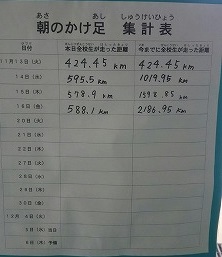 あさ あし しゅうけいひょう
朝のかけ足 集計表
日付 本日全校生が走った距離 今までに全校生が走った距離
11月13日(火) 424.45 km 424.45 km
14日(水) 595.5 km 1019.95 km
15日(木) 578.9 km 1598.85 km
16日(金) 588.1 km 2186.95 km
20日(火)
21日(水)
22日(木)
27日(火)
28日(水)
29日(木)
30日(金)
12月 4日(火)
5日(水) 当日
6日(木) 予備